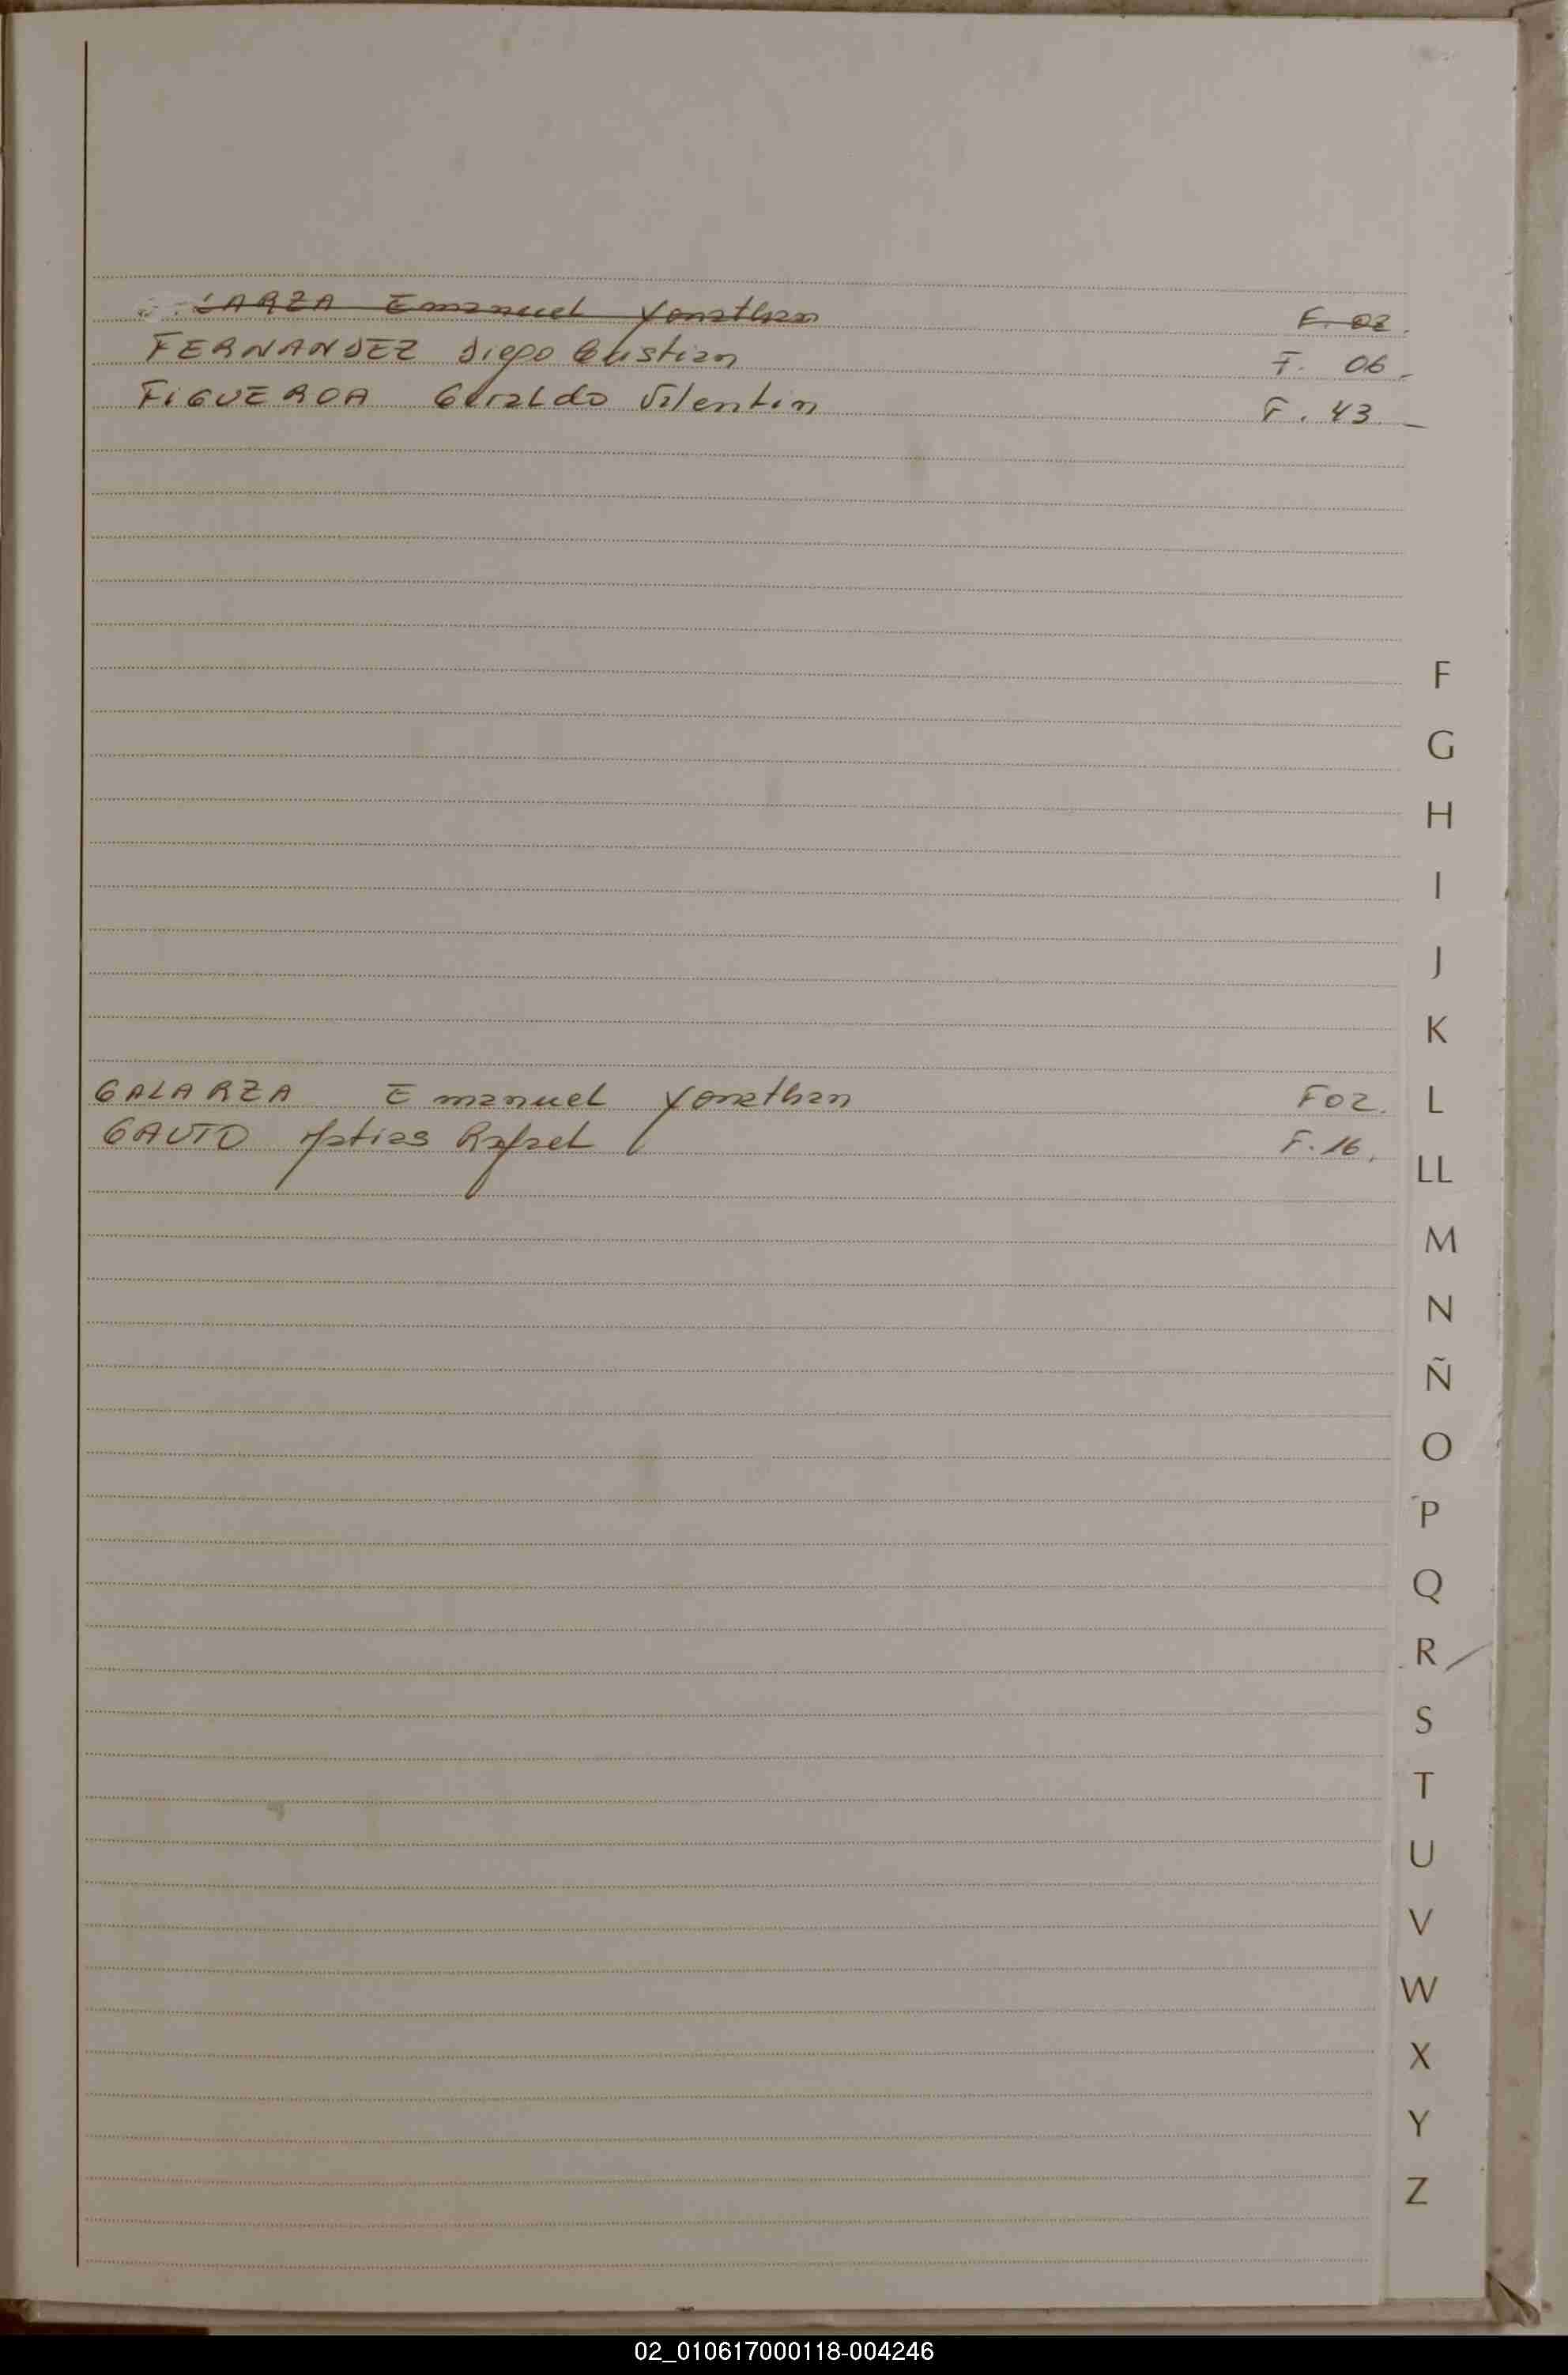 LARZA Emanuel Yonathan F. 02.
FERNANDEZ Diego Cristian F. 06
FiGUEROA Geraldo Valentin F. 43
F
G
H
I
J
K
GALARZA Emanuel Yonathan F02.
L
GAUTO Matias Rafael F. 16.
LL
M
N
Ñ
O
P
Q
R
S
T
U
V
W
X
Y
Z
02_010617000118-004246